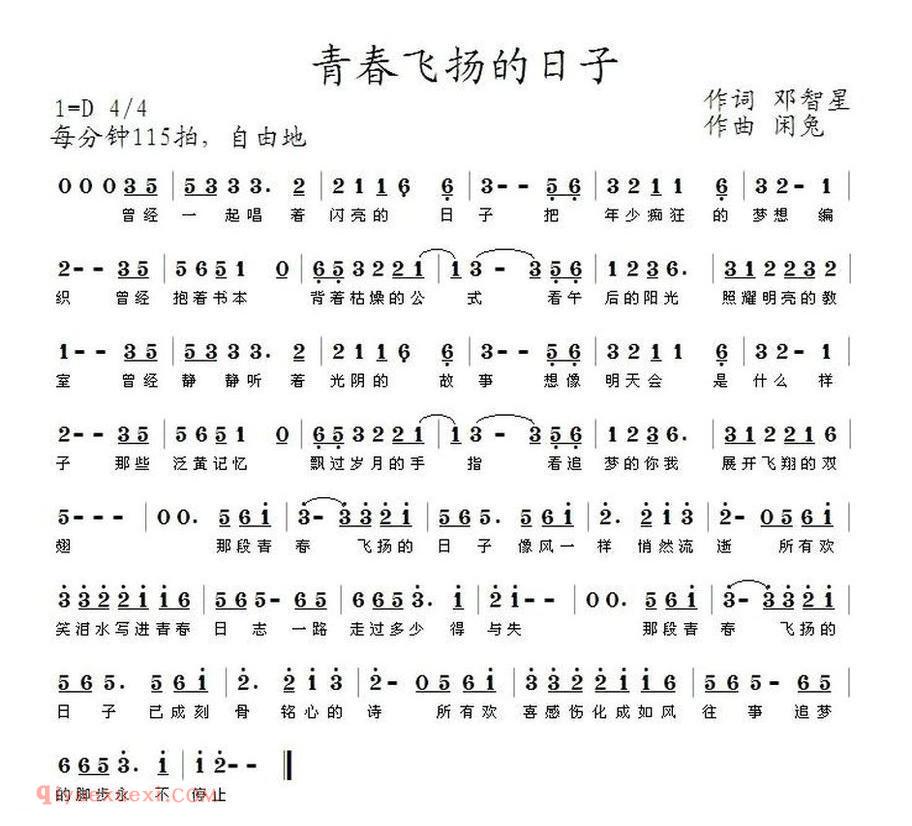 青春飞扬的日子
1=D 4/4
作词 邓智星
每分钟115拍，自由地
作曲 闲兔
0 0 0 3 5 | 5 3 3 3 3. 2 | 2 1 1 6 6 | 3 - - 5 6 | 3 2 1 1 6 | 3 2 - 1
曾经 一起唱 着 闪亮的 日 子 把 年少痴狂 的 梦想 编
2 - - 3 5 | 5 6 5 1 0 | 6 5 3 2 2 1 | 1 3 - 3 5 6 | 1 2 3 6. | 3 1 2 2 3 2
织 曾经 抱着书本 背着枯燥的公 式 看午 后的阳光 照耀明亮的教
1 - - 3 5 | 5 3 3 3 3. 2 | 2 1 1 6 6 | 3 - - 5 6 | 3 2 1 1 6 | 3 2 - 1
室 曾经 静 静听 着 光阴的 故 事 想像 明天会 是 什么 样
2 - - 3 5 | 5 6 5 1 0 | 6 5 3 2 2 1 | 1 3 - 3 5 6 | 1 2 3 6. | 3 1 2 2 1 6 |
子 那些 泛黄记忆 飘过岁月的手 指 看追 梦的你我 展开飞翔的双
5 - - - | 0 0. 5 6 i | 3 - 3 3 2 i | 5 6 5. 5 6 i | 2. 2 i 3 | 2 - 0 5 6 i |
翅 那段青 春 飞扬的 日 子 像风一 样 悄然流 逝 所有欢
3 3 2 2 i i 6 | 5 6 5 - 6 5 | 6 6 5 3. i | 2 i - - | 0 0. 5 6 i | 3 - 3 3 2 i |
笑泪水写进青春 日 志 一路 走过多少 得 与失 那段青 春 飞扬的
5 6 5. 5 6 i | 2. 2 i 3 | 2 - 0 5 6 i | 3 3 2 2 i i 6 | 5 6 5 - 6 5
日 子 已成刻 骨 铭心的 诗 所有欢 喜感伤化成如风 往 事 追梦
6 6 5 3. i | i 2 - - ‖
的脚步永 不 停止